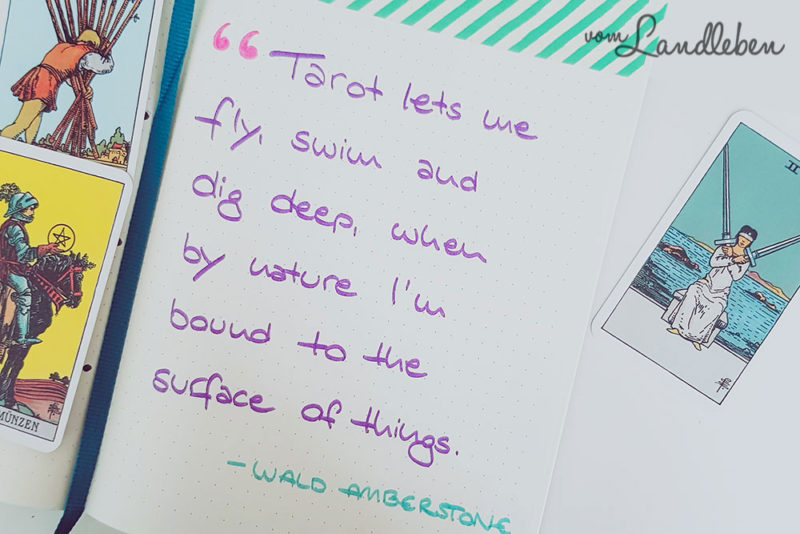 vom Landleben
“ Tarot lets me
fly, swim and
dig deep, when
by nature I'm
bound to the
surface of things.
- WALD AMBERSTONE
MÜNZEN
II